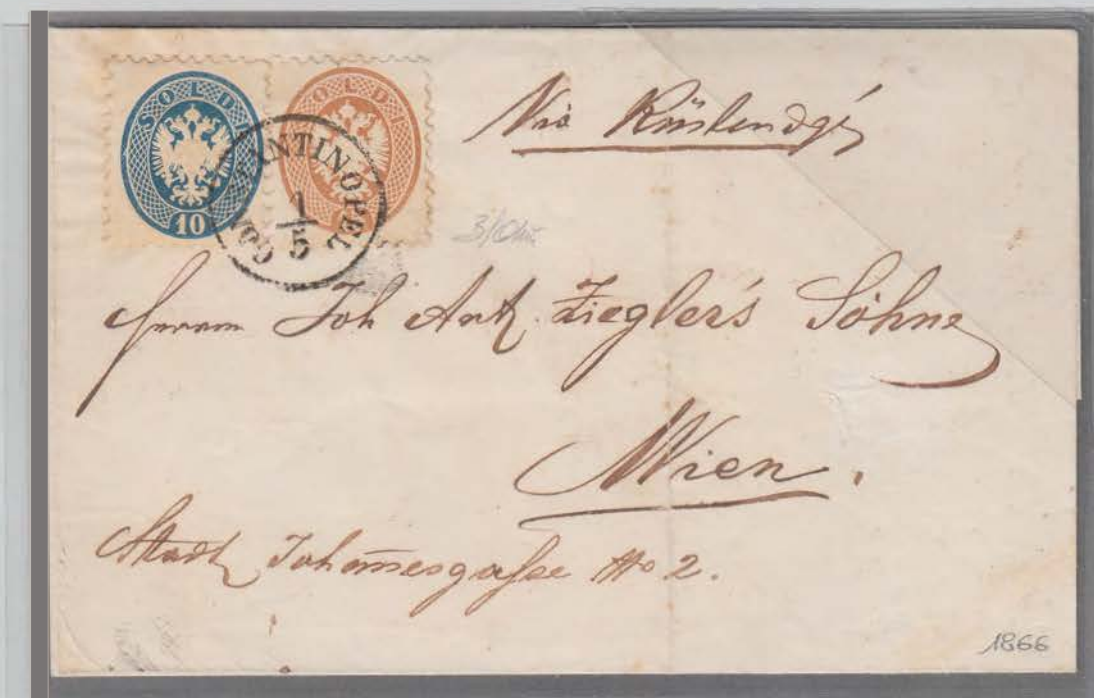 SOLDI
10
SOLDI
CONSTANTINOPEL
1/5
Via Küstendgé
Herren Joh Ant. Ziegler's Söhne
Wien.
Stadt Johannesgasse No 2.
1866